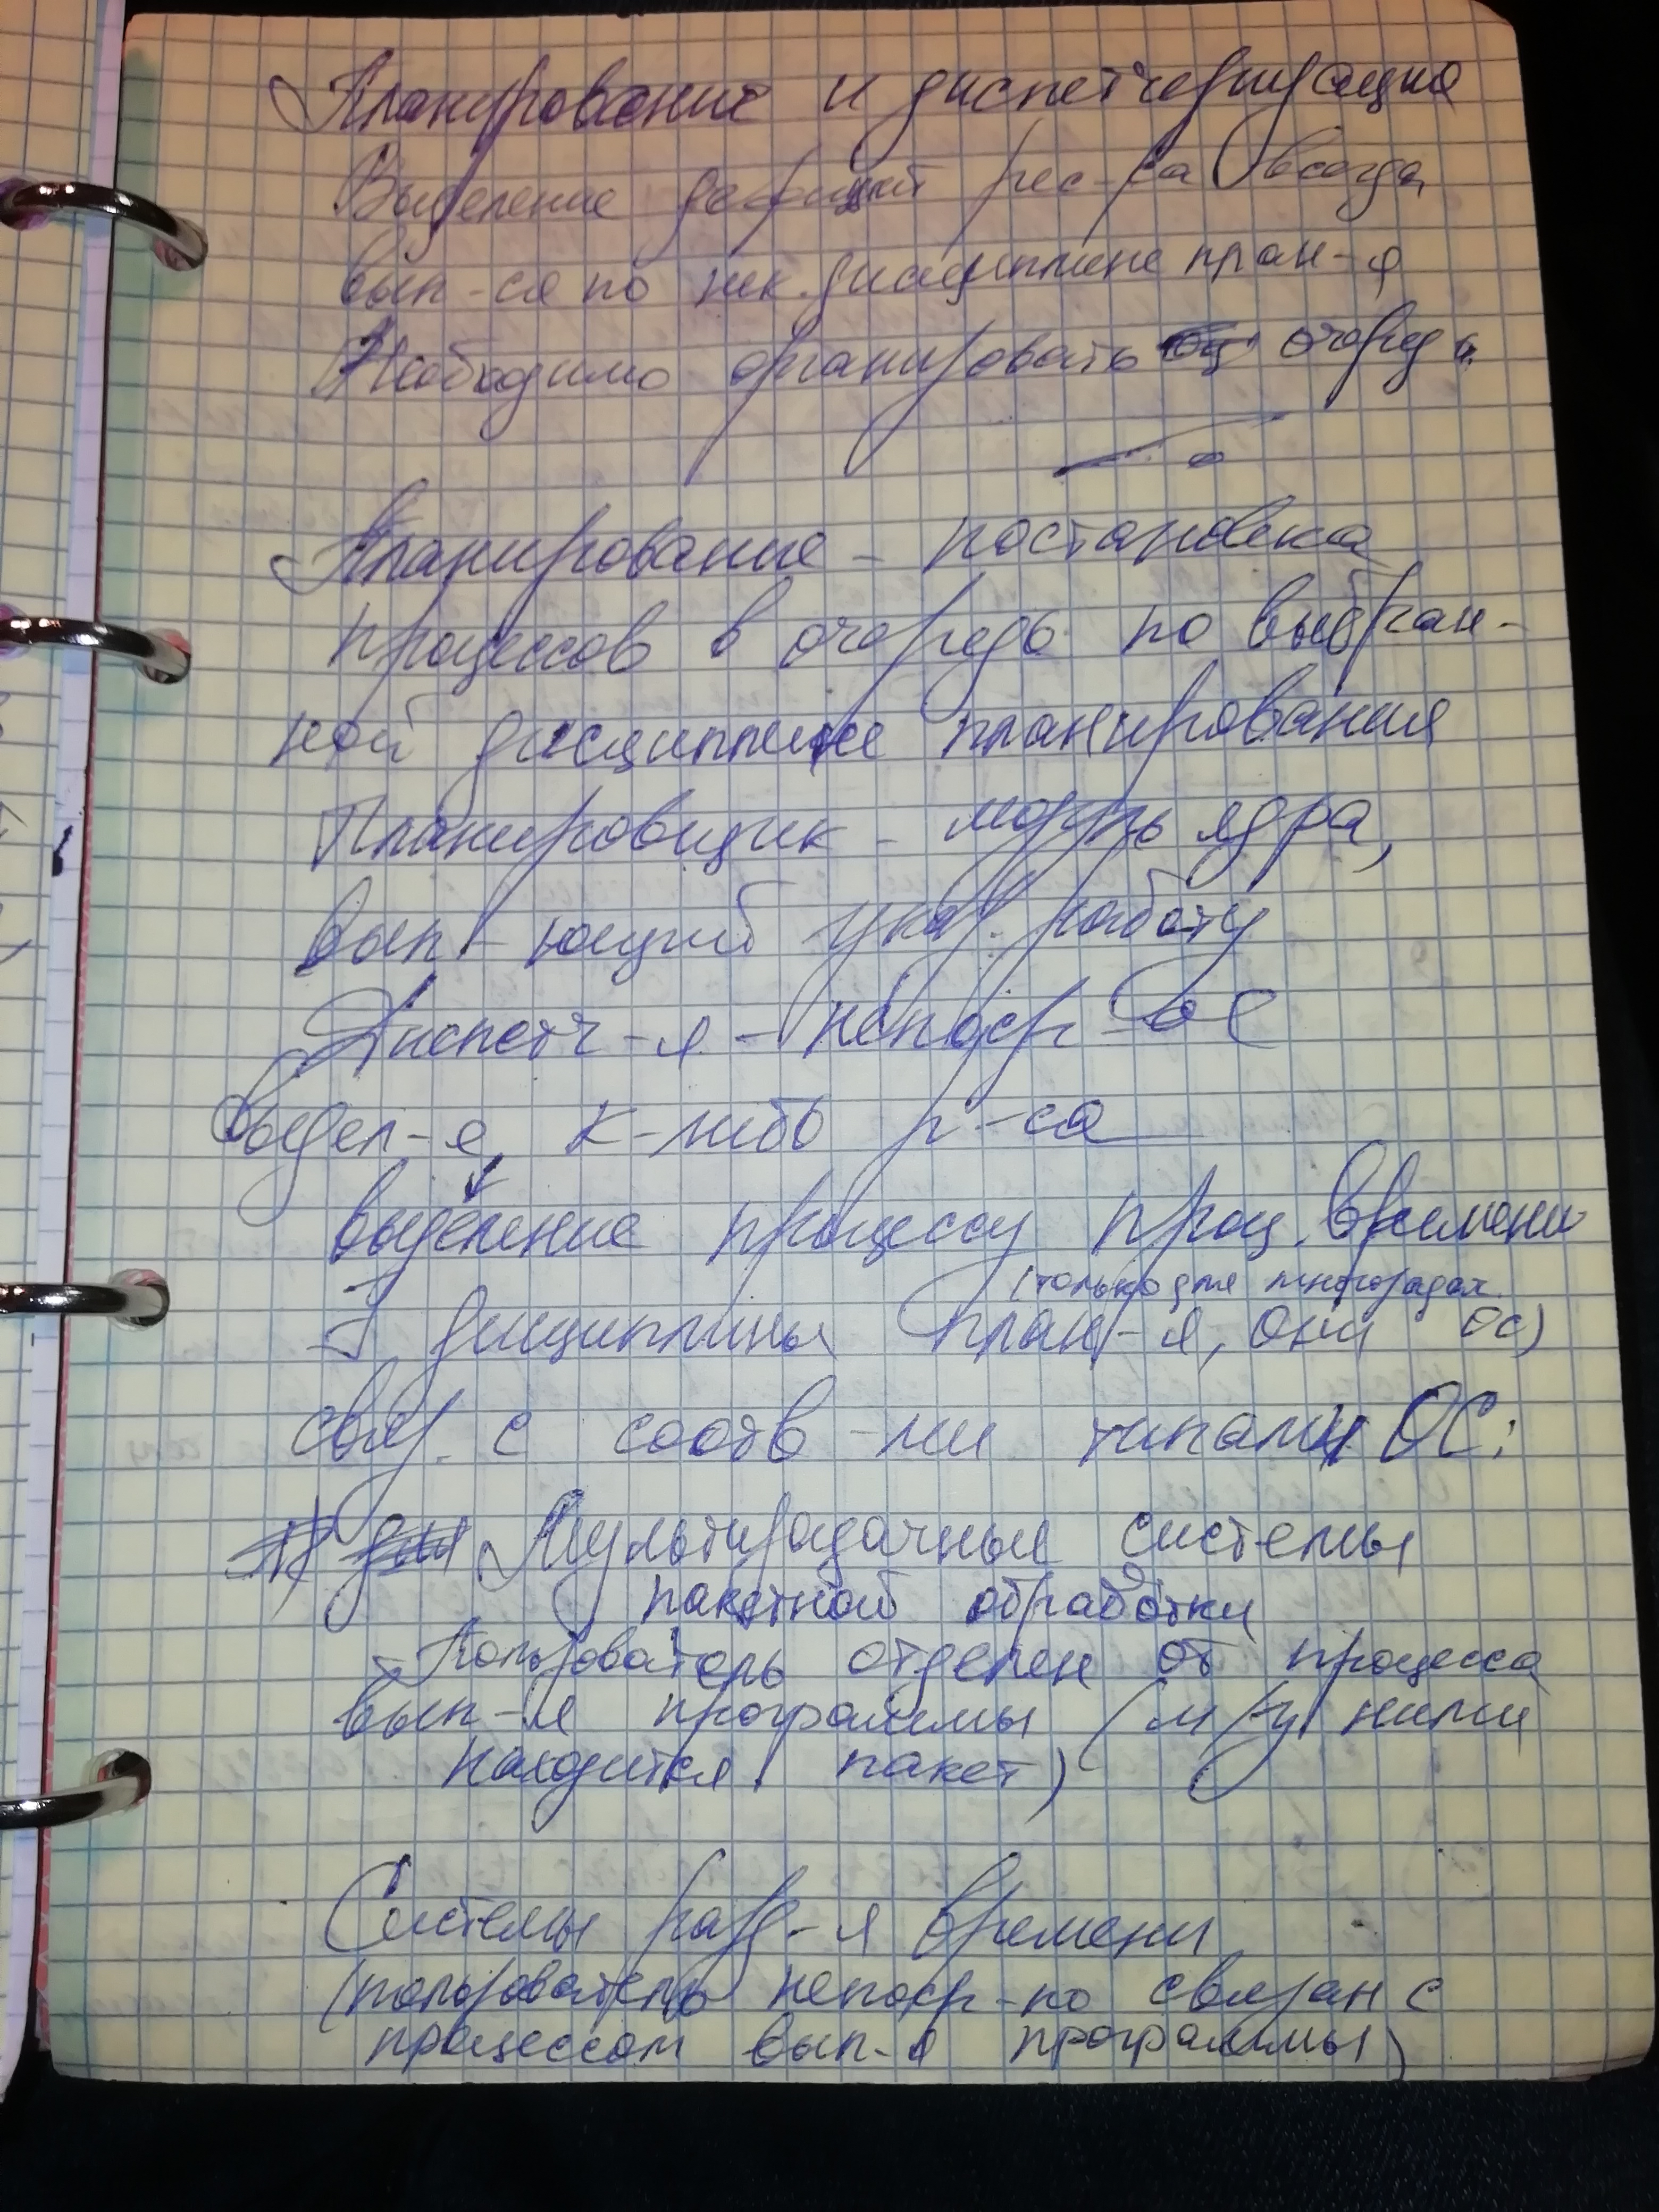 Планирование и диспетчеризация
Выделение дефицит рес-са всегда
вып-ся по нек. дисциплине план-я
Необходимо организовать очередь
Планирование - постановка
процессов в очередь по выбран-
ной дисциплине планирования
Планировщик - модуль ядра,
вып-ющий указ. работу
Диспетч-я - непоср-ое
выдел-е к-либо р-са
выделение процессу проц. времени
(только для многозадач.
∃ дисциплины план-я, они ОС)
связ. с соотв-ми типами ОС:
Мультизадачные системы
пакетной обработки
- Пользователь отделен от процесса
вып-я программы (м/у ними
находится пакет)
Системы разд-я времени
(пользователь непоср-но связан с
процессом вып-я программы)